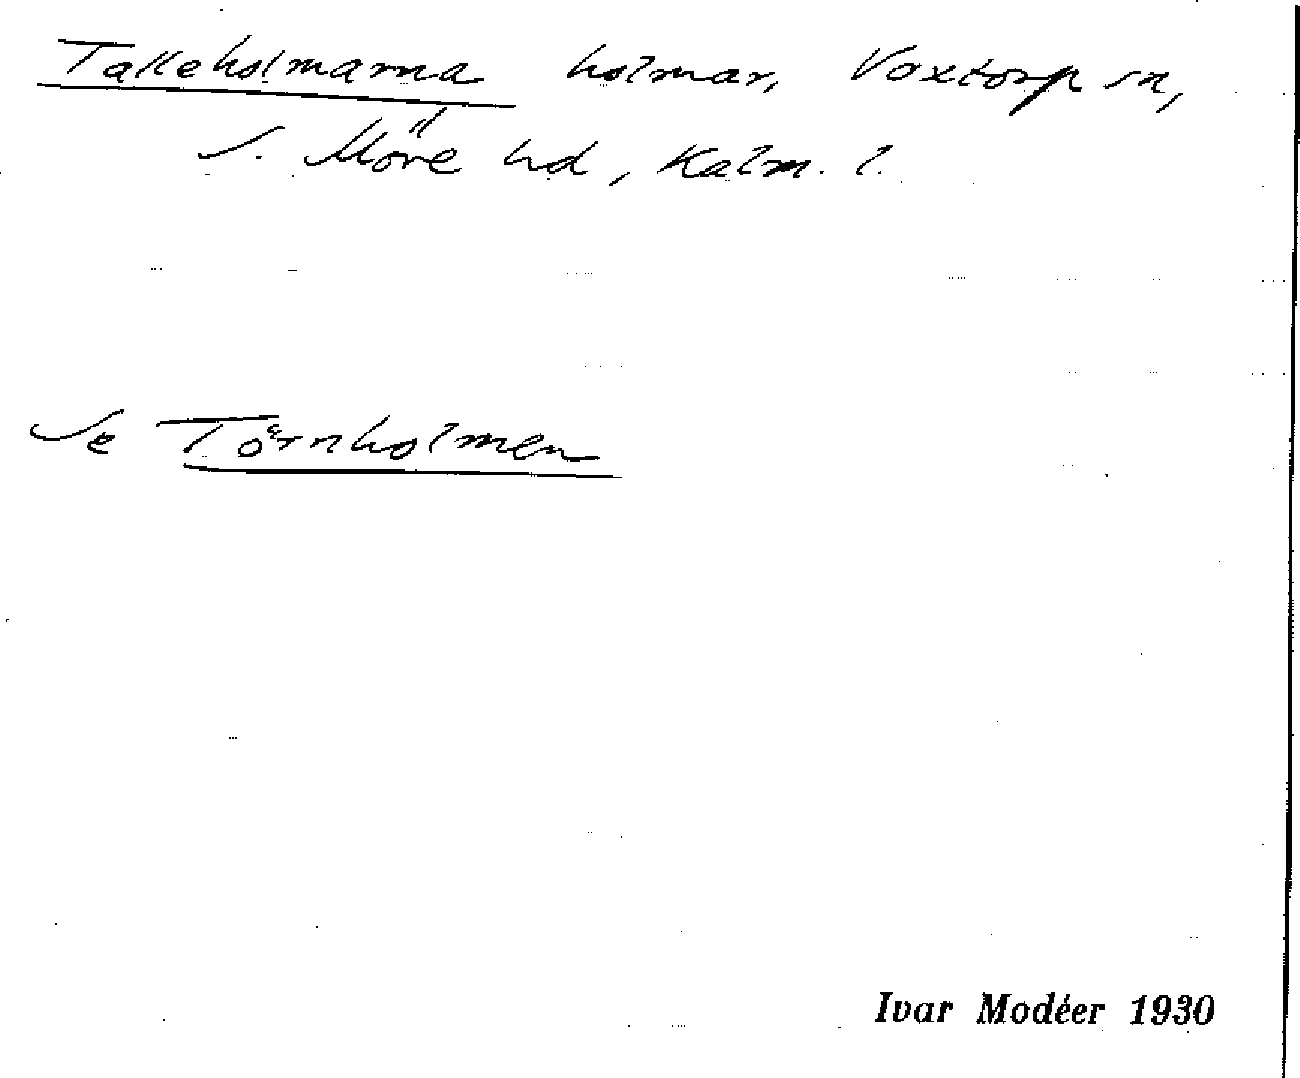 Talleholmarna holmar, Voxtorp sn,
S. Möre hd, Kalm. l.
Se Törnholmen
Ivar Modéer 1930